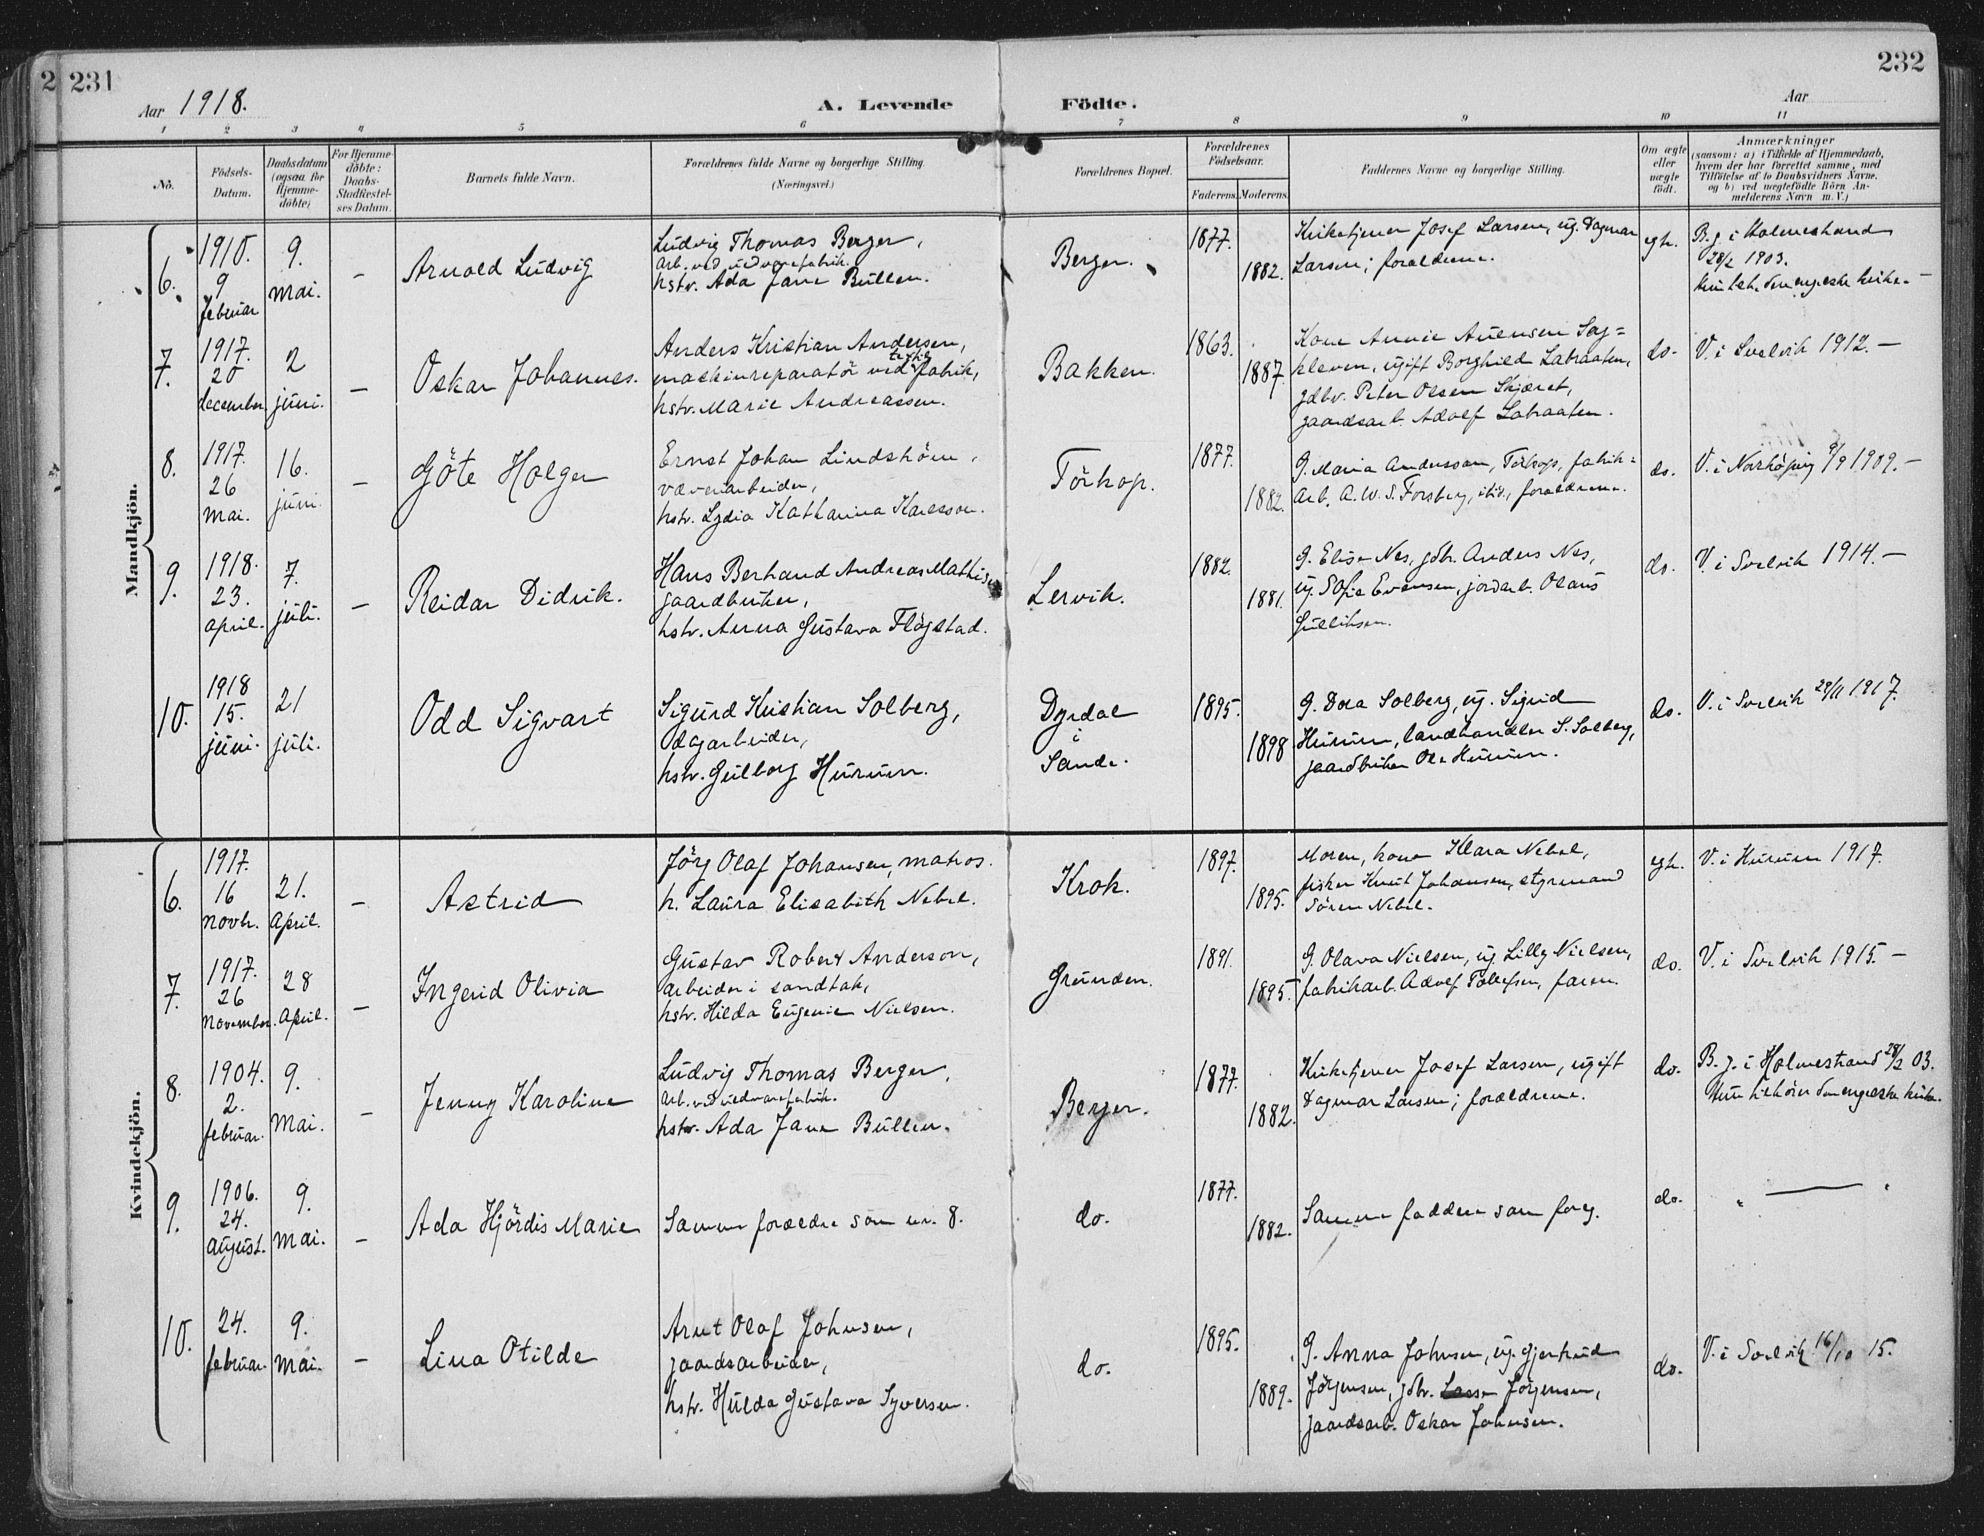 2 231
232
Aar 1918.
A. Levende
Födte.
Aar
1 2 3 4 5 6 7 8 9 10 11
No.
Födsels-
Datum.
Daabsdatum
(ogsaa for
Hjemme-
döbte)
For Hjemme-
döbte:
Daabs-
Stadfæstel-
ses Datum.
Barnets fulde Navn.
Forældrenes fulde Navne og borgerlige Stilling.
(Næringsvei.)
Forældrenes Bopæl.
Forældrenes
Födselsaar.
Faderens.
Moderens.
Faddernes Navne og borgerlige Stilling.
Om ægte
eller
uægte
født.
Anmærkninger
(saasom: a) i Tilfælde af Hjemmedaab,
hvem der har forrettet samme, med
Tilføielse af to Daabsvidners Navne,
og b) ved uægtefödte Börn An-
melderens Navn m. V.)
Mandkjön.
6.
1910.
9
februar
9.
mai.
–
Arnold Ludvig
Ludvig Thomas Berger,
arb. ved uldvarefabrik.
hstr. Ada Jane Bullen.
Berger.
1877.
1882.
Kirketjener Josef Larsen, ug. Dagmar
Larsen; forældrene.
egte.
B.g. i Holmestrand
28/2 1903.
7.
1917.
20
december
2
juni.
–
Oskar Johannes.
Anders Kristian Andersen,
maskinreparatør ved textilfabrik,
hstr. Marie Andreassen.
Bakken.
1863.
1887.
Kone Annie Auensen Sag=
kleven, ugift Borghild Labraaten,
gdbr. Peter Olsen Skjæret,
gaardsarb. Adolf Labraaten.
do.
V. i Svelvik 1912. –
8.
1917.
26
mai.
16.
juni.
–
Göte Holger
Ernst Johan Lindström,
væveriarbeider,
hstr. Lydia Katharina Karlsson.
Törkop.
1877.
1882.
G. Maria Andersson, Törkop, fabrik=
arb. A. W. S. Forsberg, ibid., forældrene.
do.
V. i Norrköping 9/9 1909. –
9.
1918.
23.
april.
7.
juli.
–
Reidar Didrik.
Hans Berhand Andreas Mathisen
gaardbruker,
hstr. Anna Gustava Flögstad.
Lervik.
1882.
1881.
G. Elise Nes, gbr. Anders Nes,
ug. Sofie Evensen, jordarb. Olaus
Gulliksen.
do.
V. i Svelvik 1914. –
10.
1918
15.
juni.
21
juli.
Odd Sigvart
Sigurd Kristian Solberg,
dagarbeider,
hstr. Gulborg Hurum.
Dyrdal
i
Sande.
1895.
1898
G. Dora Solberg, ug. Sigrid
Hurum, landhandler S. Solberg,
gaardbruker Ole Hurum.
do.
V. i Svelvik 29/11 1917.
Kvindekjön.
6.
1917.
16
novbr.
21.
April.
–
Astrid
Jörg Olaf Johansen, matros.
h. Laura Elisabeth Nebel.
Krok.
1897.
1895.
Moren, kone Klara Nebel,
fisker Knut Johansen, styrmand
Sören Nebel.
egte.
V. i Hurum 1917.
7.
1917.
26
november.
28
April.
–
Ingerid Olivia
Gustav Robert Anderson,
arbeider i sandtak,
hstr. Hilda Eugenie Nielsen.
Grunden.
1891.
1895.
G. Olava Nielsen, ug Lilly Nielsen,
fabrikarb. Adolf Tollefsen, faren.
do.
V. i Svelvik 1915. –
8.
1904.
2.
februar.
9.
Mai.
–
Jenny Karoline
Ludvig Thomas Berger,
arb. ved uldvarefabrik.
hstr. Ada Jane Bullen.
Berger.
1877.
1882.
Kirketjener Josef Larsen, ugift
Dagmar Larsen; forældrene.
do.
B. g. i Holmestrand 28/2 03.
Hun tilhører den engelske kirke.
9.
1906.
24.
august.
9.
mai.
–
Ada Hjördis Marie
Samme forældre som nr. 8.
do.
1877.
1882.
Samme faddere som foreg.
do.
„ — „
10.
24.
februar.
9.
mai.
–
Lina Otilde
Arnt Olaf Johnsen,
gaardsarbeider,
hstr. Hulda Gustava Syversen.
do.
1895.
1889.
G. Anna Johnsen, ug. Gjertrud
Jörgensen, gbr. Jörgensen,
gaardsarb. Oskar Johnsen.
do.
V. i Svelvik 16/10 15.